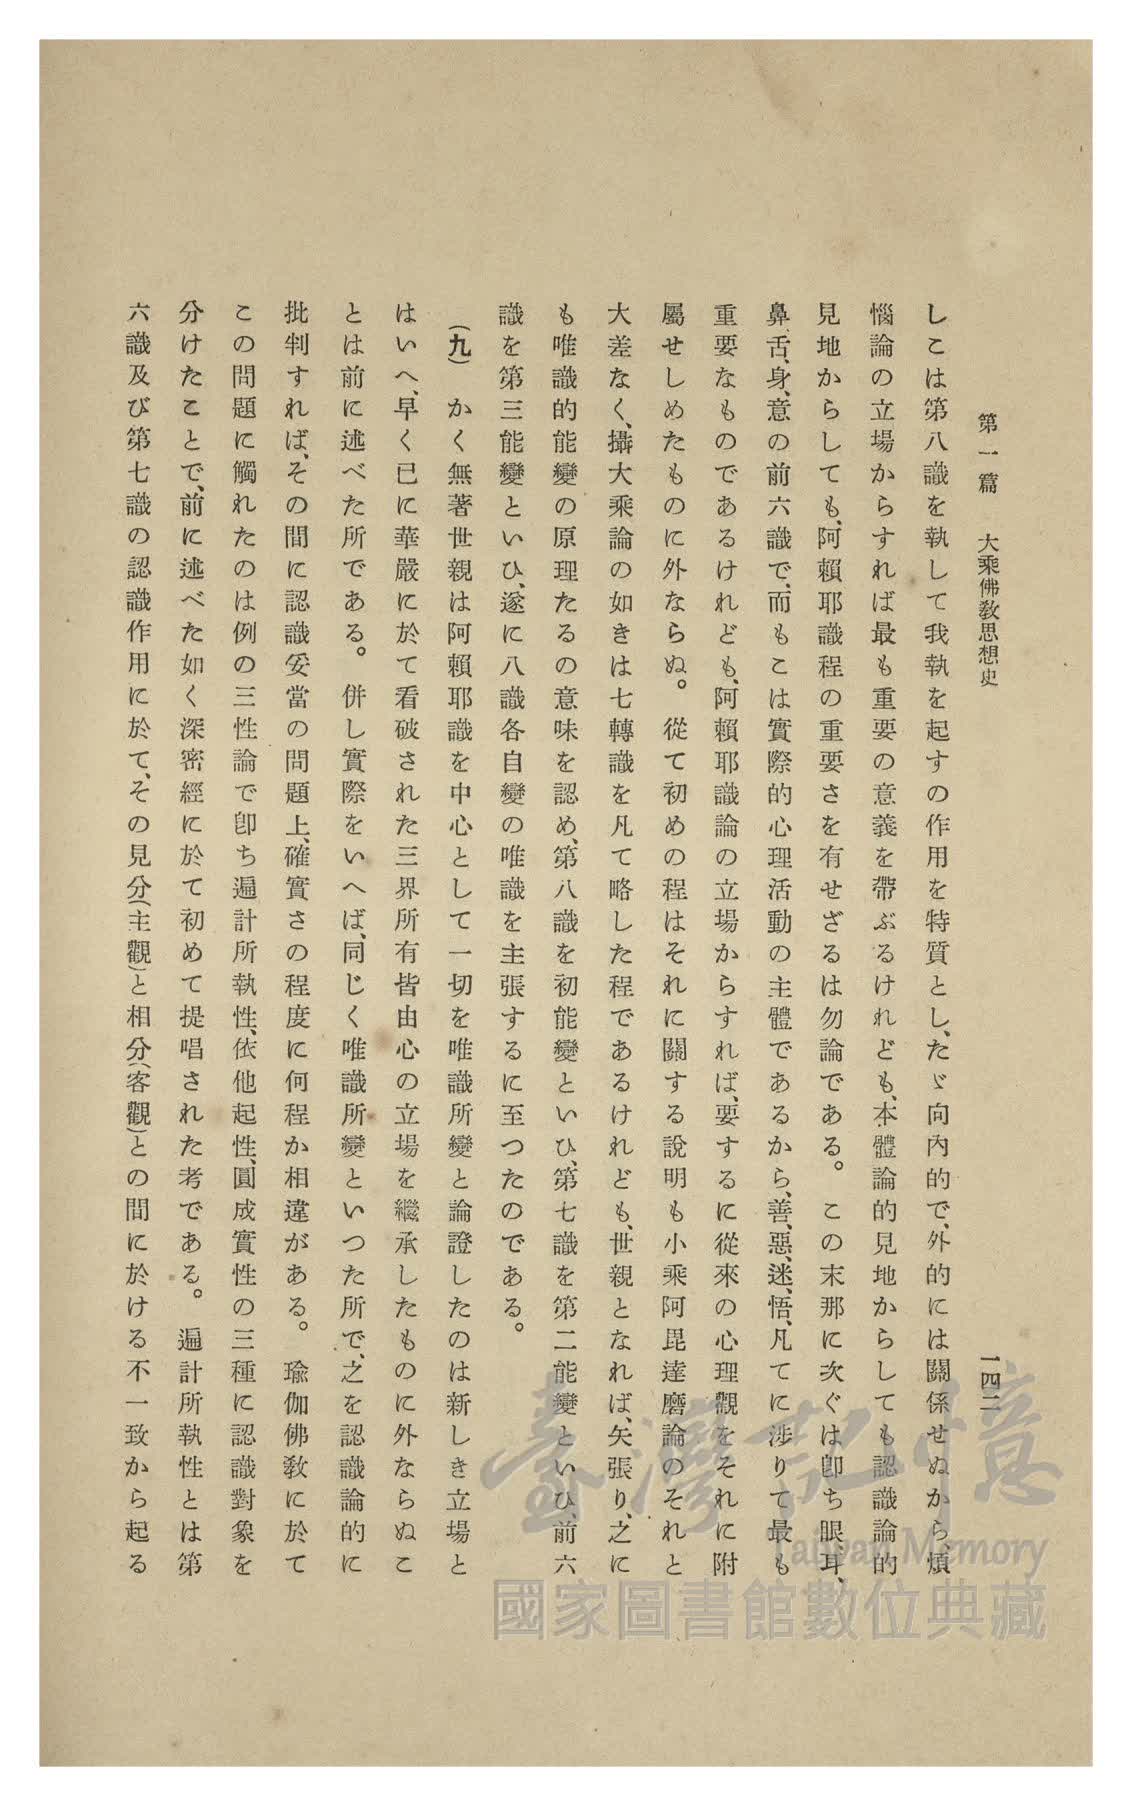 第一篇　大乘佛敎思想史
一四二
しこは第八識を執して我執を起すの作用を特質とし、たゞ向內的で、外的には關係せぬから、煩
惱論の立場からすれば最も重要の意義を帶ぶるけれども、本體論的見地からしても認識論的
見地からしても、阿賴耶識程の重要さを有せざるは勿論である。この末那に次ぐは卽ち眼、耳、
鼻、舌、身、意の前六識で、而もこは實際的心理活動の主體であるから、善、惡、迷、悟、凡てに涉りて最も
重要なものであるけれども、阿賴耶識論の立場からすれば、要するに從來の心理觀をそれに附
屬せしめたものに外ならぬ。從て初めの程はそれに關する說明も小乘阿毘達磨論のそれと
大差なく、攝大乘論の如きは七轉識を凡て略した程であるけれども、世親となれば、矢張り、之に
も唯識的能變の原理たるの意味を認め、第八識を初能變といひ、第七識を第二能變といひ、前六
識を第三能變といひ、遂に八識各自變の唯識を主張するに至つたのである。
(九)　かく無著世親は阿賴耶識を中心として一切を唯識所變と論證したのは新しき立場と
はいへ、早く已に華嚴に於て看破された三界所有皆由心の立場を繼承したものに外ならぬこ
とは前に述べた所である。併し實際をいへば、同じく唯識所變といつた所で、之を認識論的に
批判すれば、その間に認識妥當の問題上、確實さの程度に何程か相違がある。瑜伽佛敎に於て
この問題に觸れたのは例の三性論で卽ち遍計所執性、依他起性、圓成實性の三種に認識對象を
分けたことで、前に述べた如く深密經に於て初めて提唱された考である。遍計所執性とは第
六識及び第七識の認識作用に於て、その見分(主觀)と相分(客觀)との間に於ける不一致から起る
臺灣記憶
Taiwan Memory
國家圖書館數位典藏